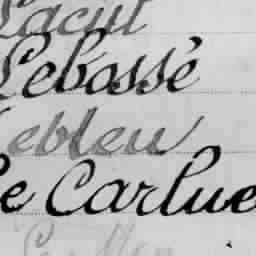 Lacut
Lebossé
Lebleu
Le Carlue